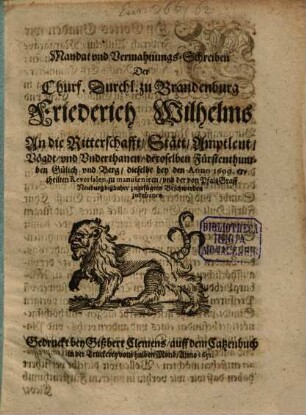 Mandat vnd Vermahnungs-Schreiben
Der
Churf. Durchl. zu Brandenburg
Friederich Wilhelms
An die Ritterschafft/ Stätt/ Amptleut/
Vögdt vnd Vnderthanen/ deroselben Fürstenthum-
ben Gülich vnd Berg/ dieselbe bey den Anno 1609. er-
theilten Reversalen zu manuteneren/ vnd der von Pfaltzgraff
Newburg bißhero zugefügten Beschwerden
zubefreyen.
BIBLIOTHECA
REGIA
MONACENSIS.
Gedruckt bey Gißbert Clemens/ auff dem Catzenbuch
in der Truckerey vom halben Mond/ Anno